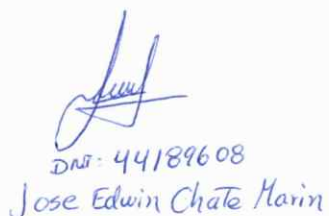 DNI: 44189608
Jose Edwin Chate Marin